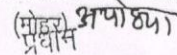 (मोहर) अयोध्या
प्रधान